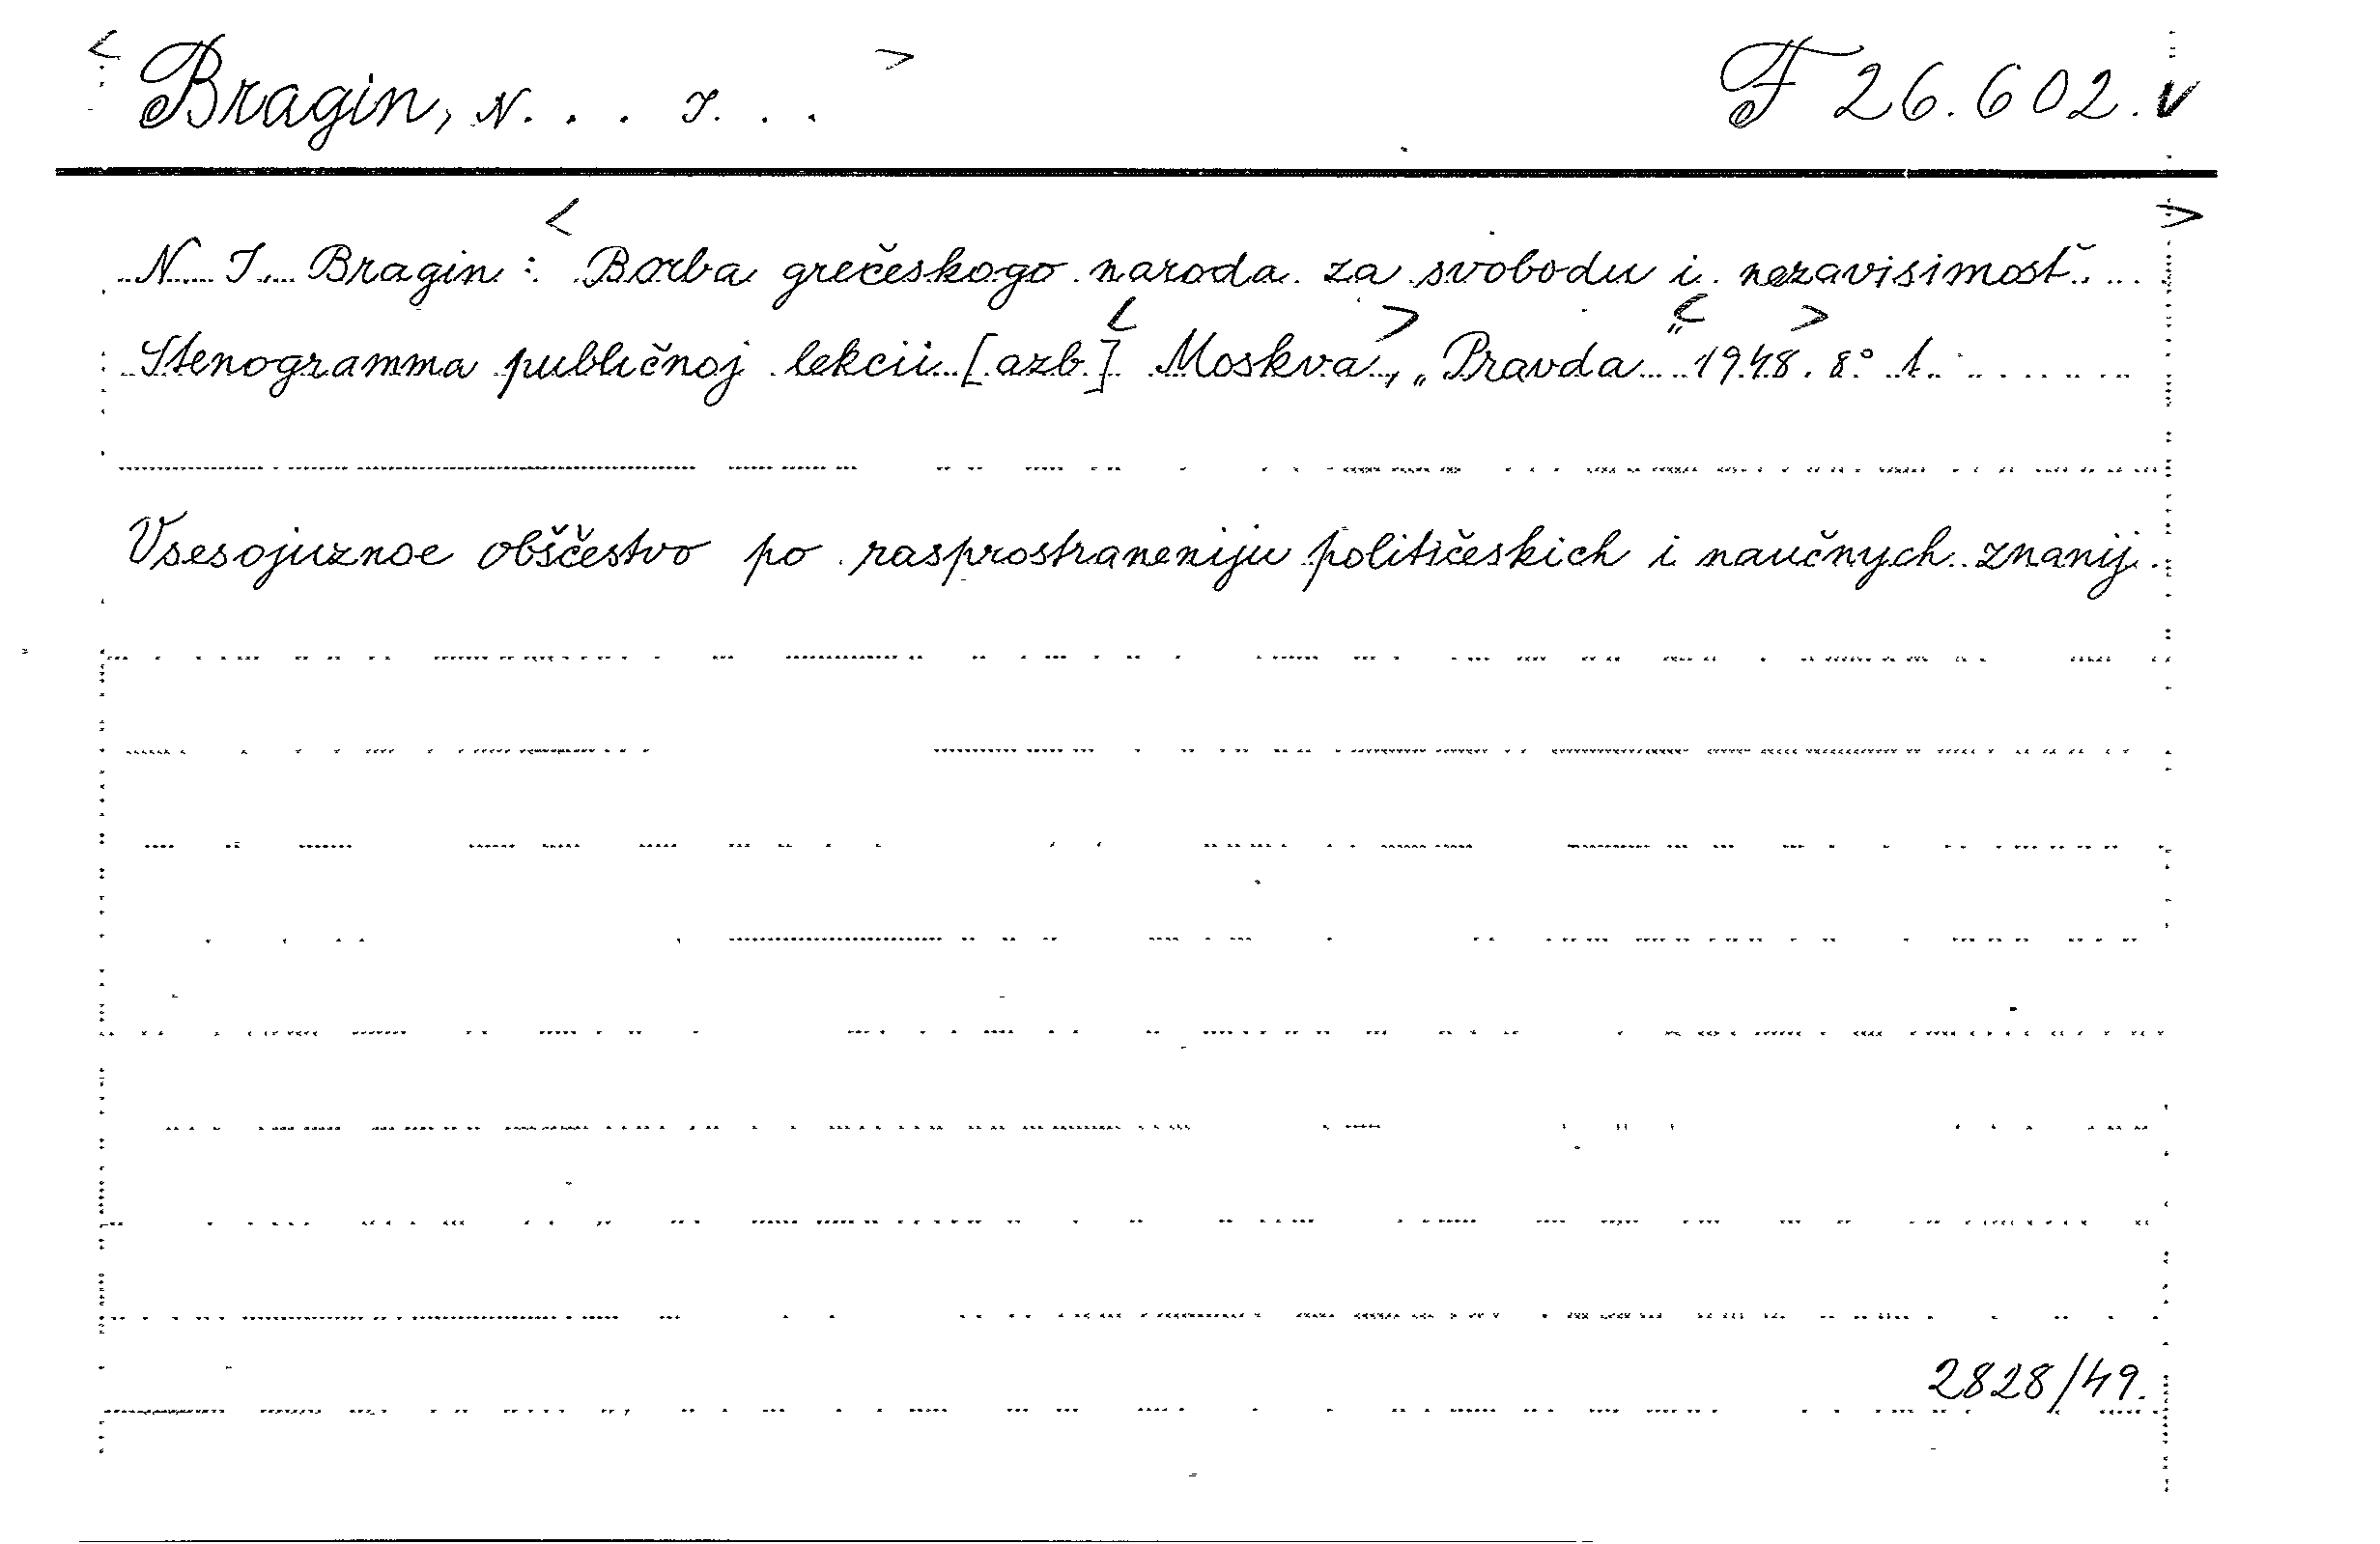 < Bragin, N. . . I. . . > F 26.602. v
N. I. Bragin : < Borba grečeskogo naroda za svobodu i nezavisimosť. >
Stenogramma publičnoj lekcii [azb.] < Moskva >, „Pravda" < 1948. > 8° 1.
Vsesojuznoe obščestvo po rasprostraneniju političeskich i naučnych znanij.
2828/49.